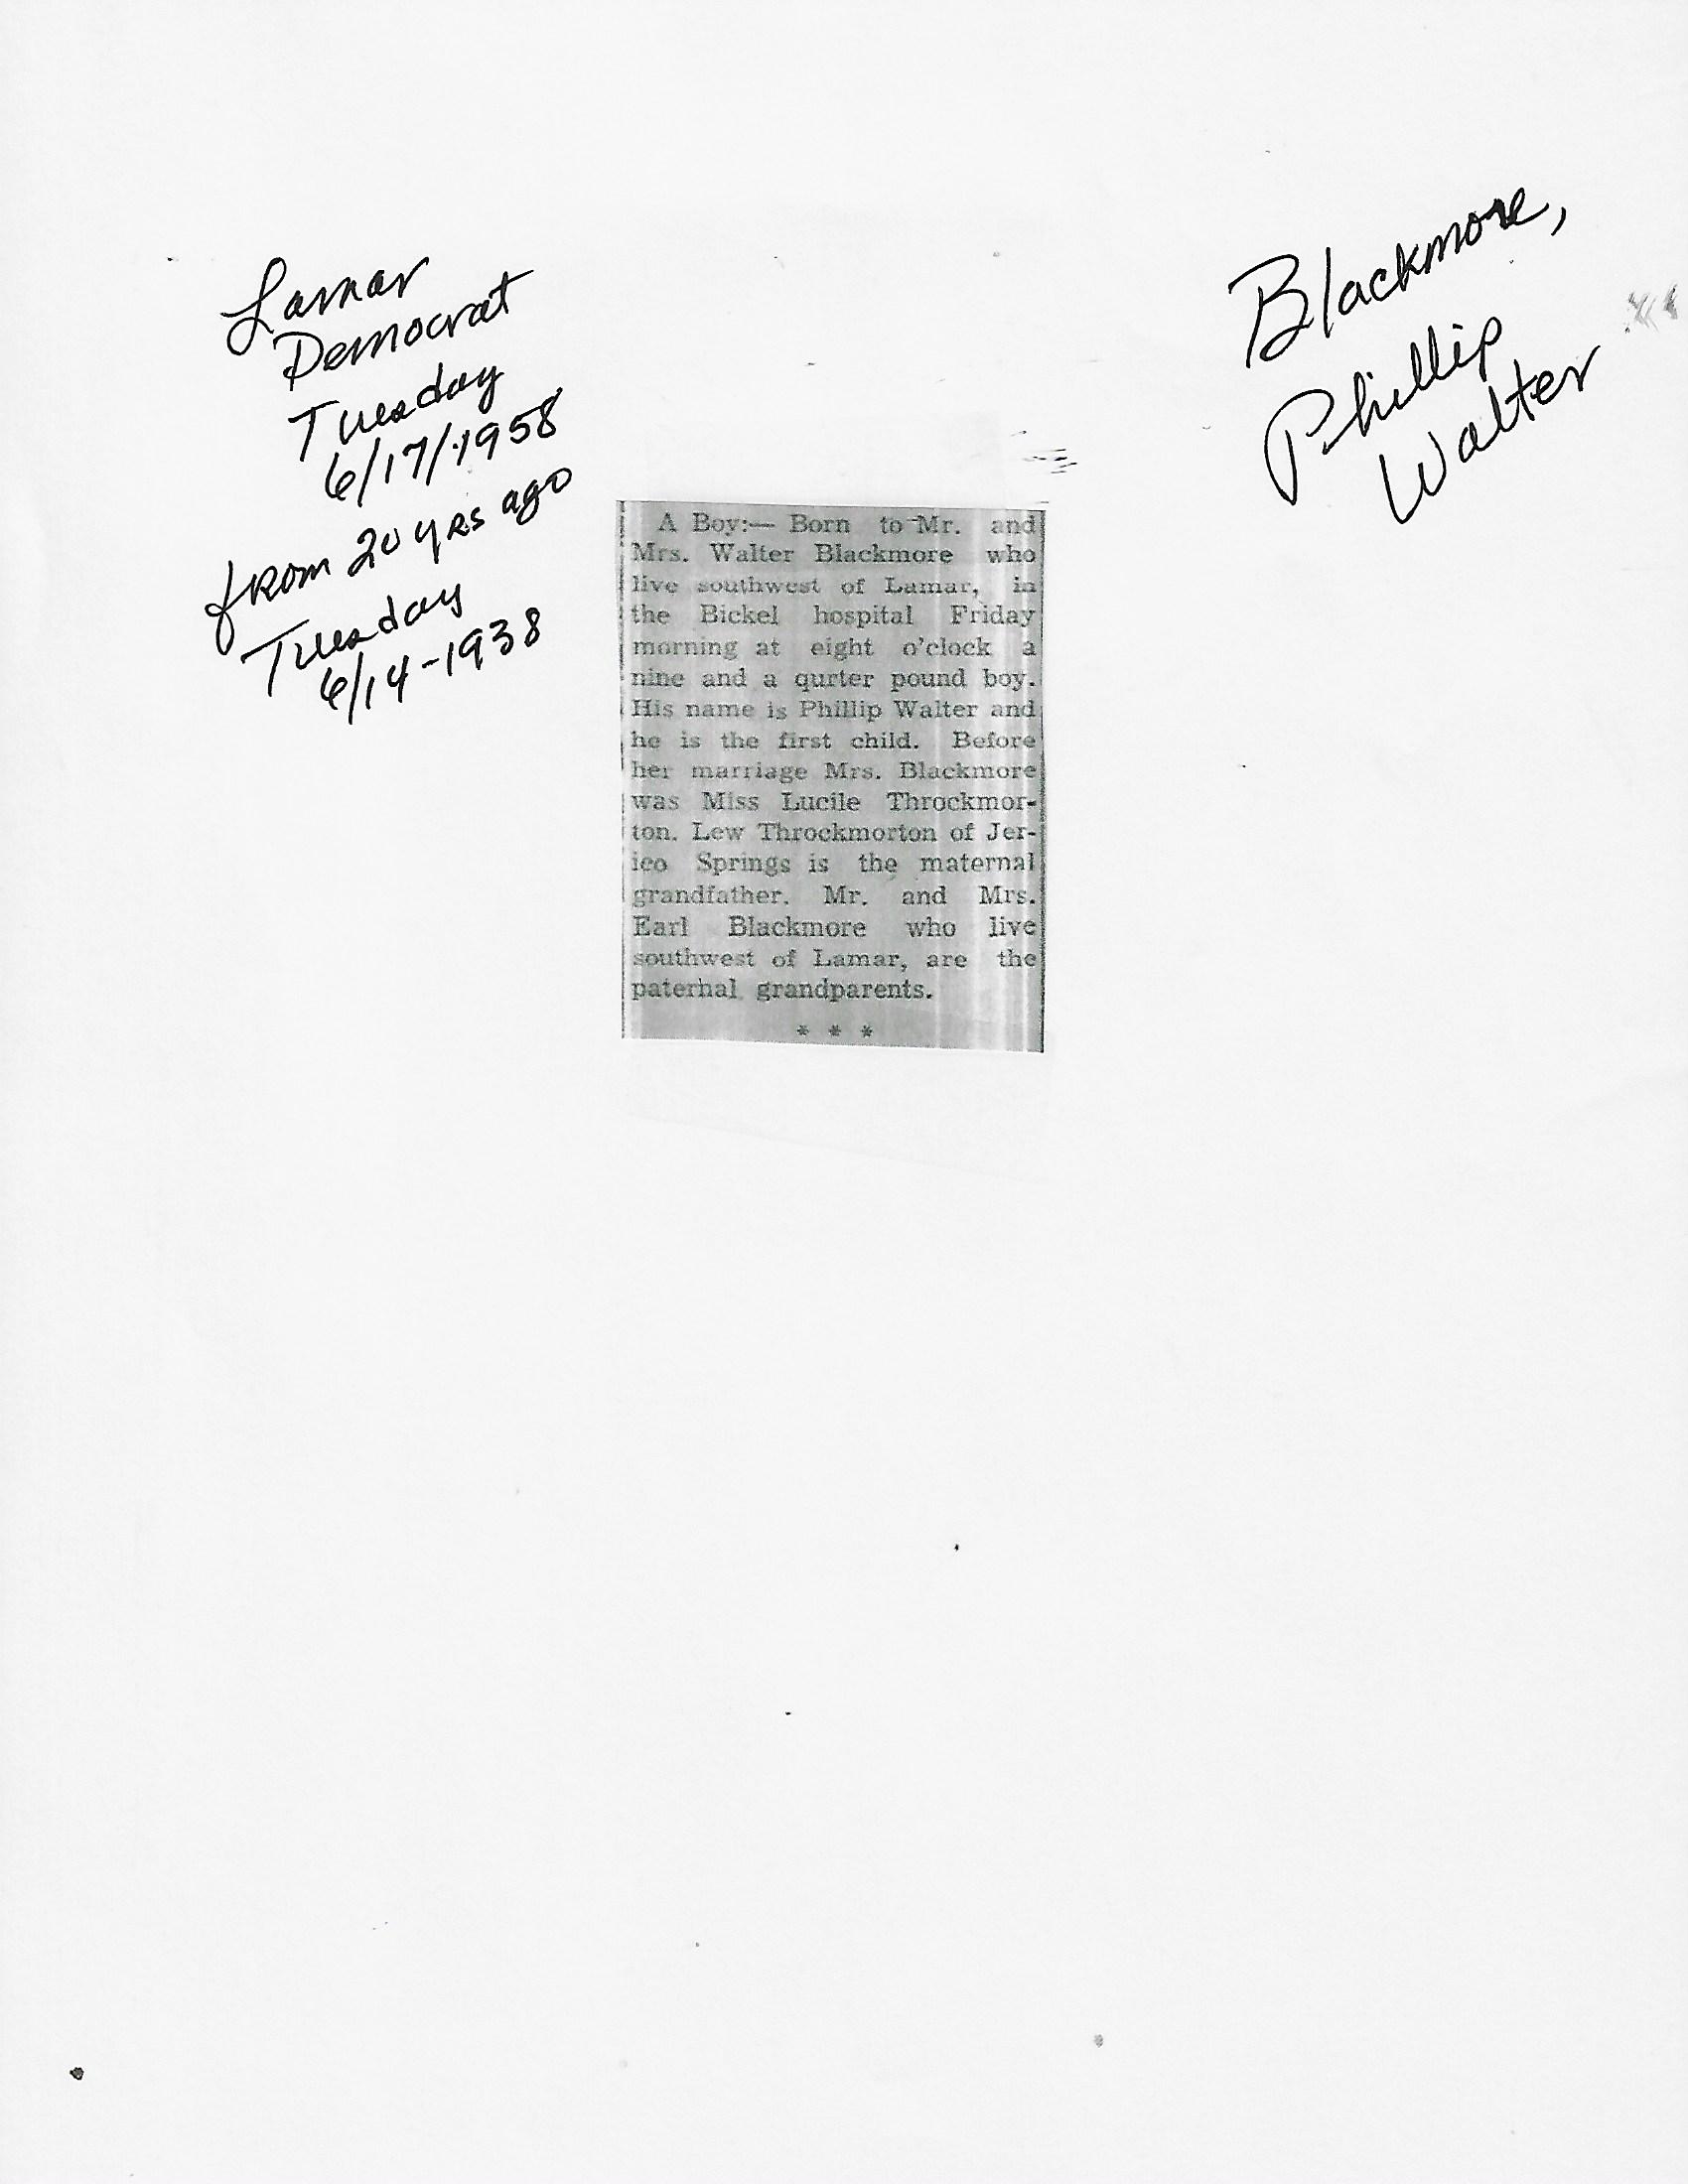 Lamar
Democrat
Tuesday
6/17/1958
from 20 yrs ago
Tuesday
6/14-1938
Blackmore,
Phillip
Walter
A Boy:— Born to Mr. and
Mrs. Walter Blackmore who
live southwest of Lamar, in
the Bickel hospital Friday
morning at eight o'clock a
nine and a qurter pound boy.
His name is Phillip Walter and
he is the first child. Before
her marriage Mrs. Blackmore
was Miss Lucile Throckmor-
ton. Lew Throckmorton of Jer-
ico Springs is the maternal
grandfather. Mr. and Mrs.
Earl Blackmore who live
southwest of Lamar, are the
paterhal grandparents.
* * *